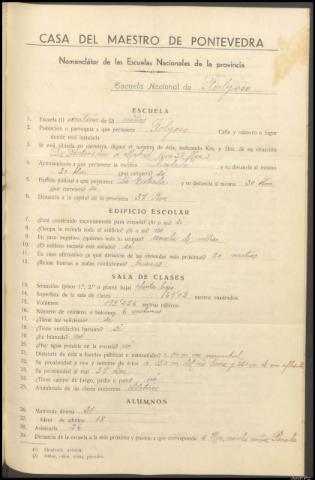 CASA DEL MAESTRO DE PONTEVEDRA
Nomenclátor de las Escuelas Nacionales de la provincia
Escuela Nacional de Folgoso
ESCUELA
1. Escuela (1) unitaria de (2) niños
2. Población o parroquia a que pertenece Folgoso Calle y número o lugar
donde está instalada.
3. Si está situada en carretera, dígase el nombre de ésta, indicando Km. y Hm. de su situación
4. Ayuntamiento a que pertenece la escuela y su distancia al mismo
20 Km. (por carretera)
5. Partido judicial a que pertenece La Estrada y su distancia al mismo 30 Km.
(por carretera)
6. Distancia a la capital de la provincia 37 Km
EDIFICIO ESCOLAR
7. ¿Está construido expresamente para escuela? (Sí o no)
8. ¿Ocupa la escuela todo el edificio? (Sí o no) no
9. En caso negativo ¿quiénes más lo ocupan? escuela de niñas
10. ¿El edificio escuela está aislado? sí
11. En caso afirmativo ¿a qué distancia de las viviendas más próximas? 20 metros
12. ¿Reune buenas o malas condiciones? buenas
SALA DE CLASES
13. Situación: (piso 1.º, 2.º o planta baja) planta baja
14. Superficie de la sala de clases metros cuadrados.
15. Volúmen: metros cúbicos.
16. Número de ventanas o balcones 6 ventanas
17. ¿Tiene luz suficiente? sí
18. ¿Tiene ventilación bastante? sí
19. ¿Es húmeda? no
20. ¿Hay agua potable en la escuela? no
21. Distancia de ésta a fuentes públicas o manantiales
22. Su proximidad a ríos y nombre de éstos
23. Su proximidad al mar 37 Km.
24. ¿Tiene campo de juego, jardín o patio? no
25. Alumbrado de las clases nocturnas eléctrico
ALUMNOS
26. Matrícula diurna
27. Idem de adultos 18
28. Asistencia 26
29. Distancia de la escuela a la más próxima y pueblo a que corresponde
(1) Unitaria, mixta.